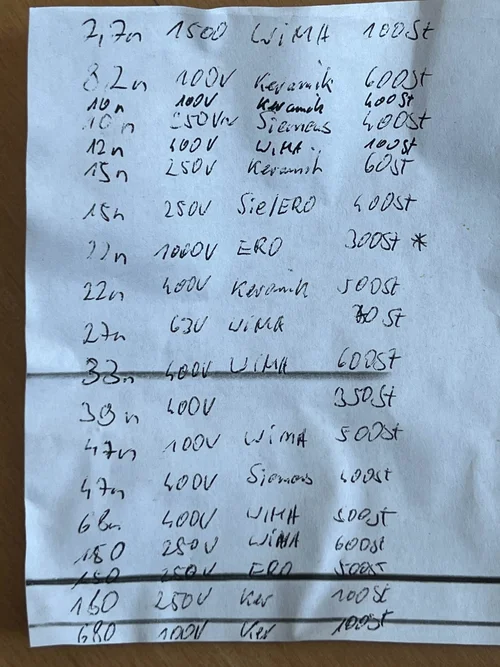 2,7n 1500 WIMA 100St
8,2n 100V Keramik 600St
10n 100V Keramik 400St
10n 250V~ Siemens 400St
12n 400V WIMA 100St
15n 250V Keramik 60St
15n 250V Sie/ERO 400St
22n 1000V ERO 300St *
22n 400V Keramik 500St
27n 63V WIMA St
33n 400V WIMA 600St
39n 400V 350St
47n 100V WIMA 500St
47n 400V Siemens 400St
68n 400V WIMA 500St
150 250V WIMA 600St
150 250V ERO 500St
160 250V Ker 100St
680 100V Ker 100St